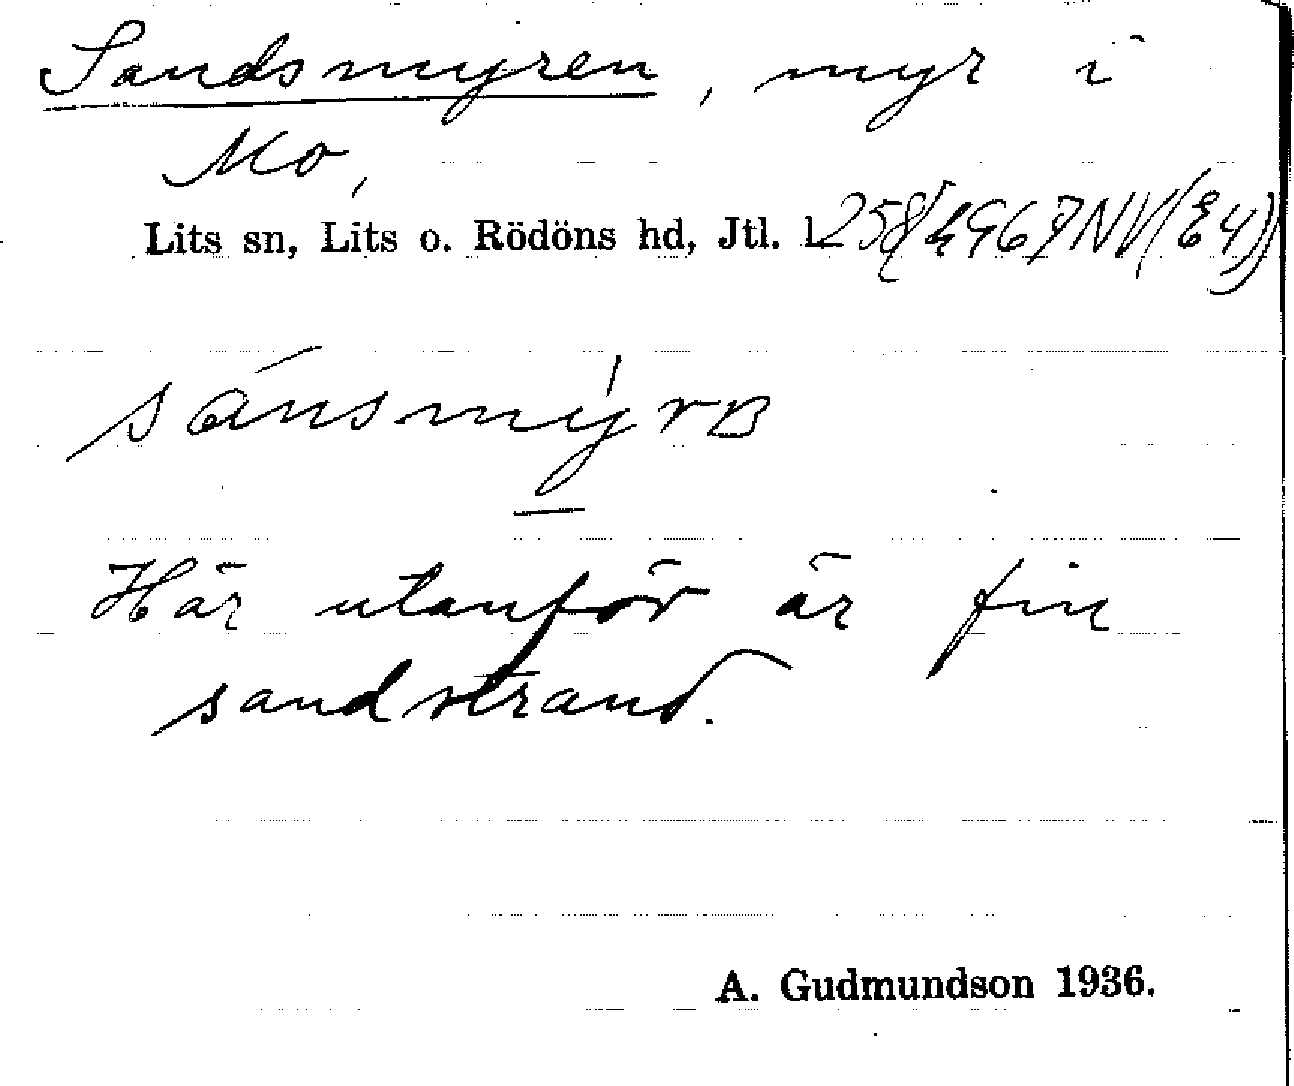 Sandsmyren, myr i
Mo,
Lits sn, Lits o. Rödöns hd, Jtl. l.
sánsmýrB
Här utanför är fin
sandstrand.
A. Gudmundson 1936.